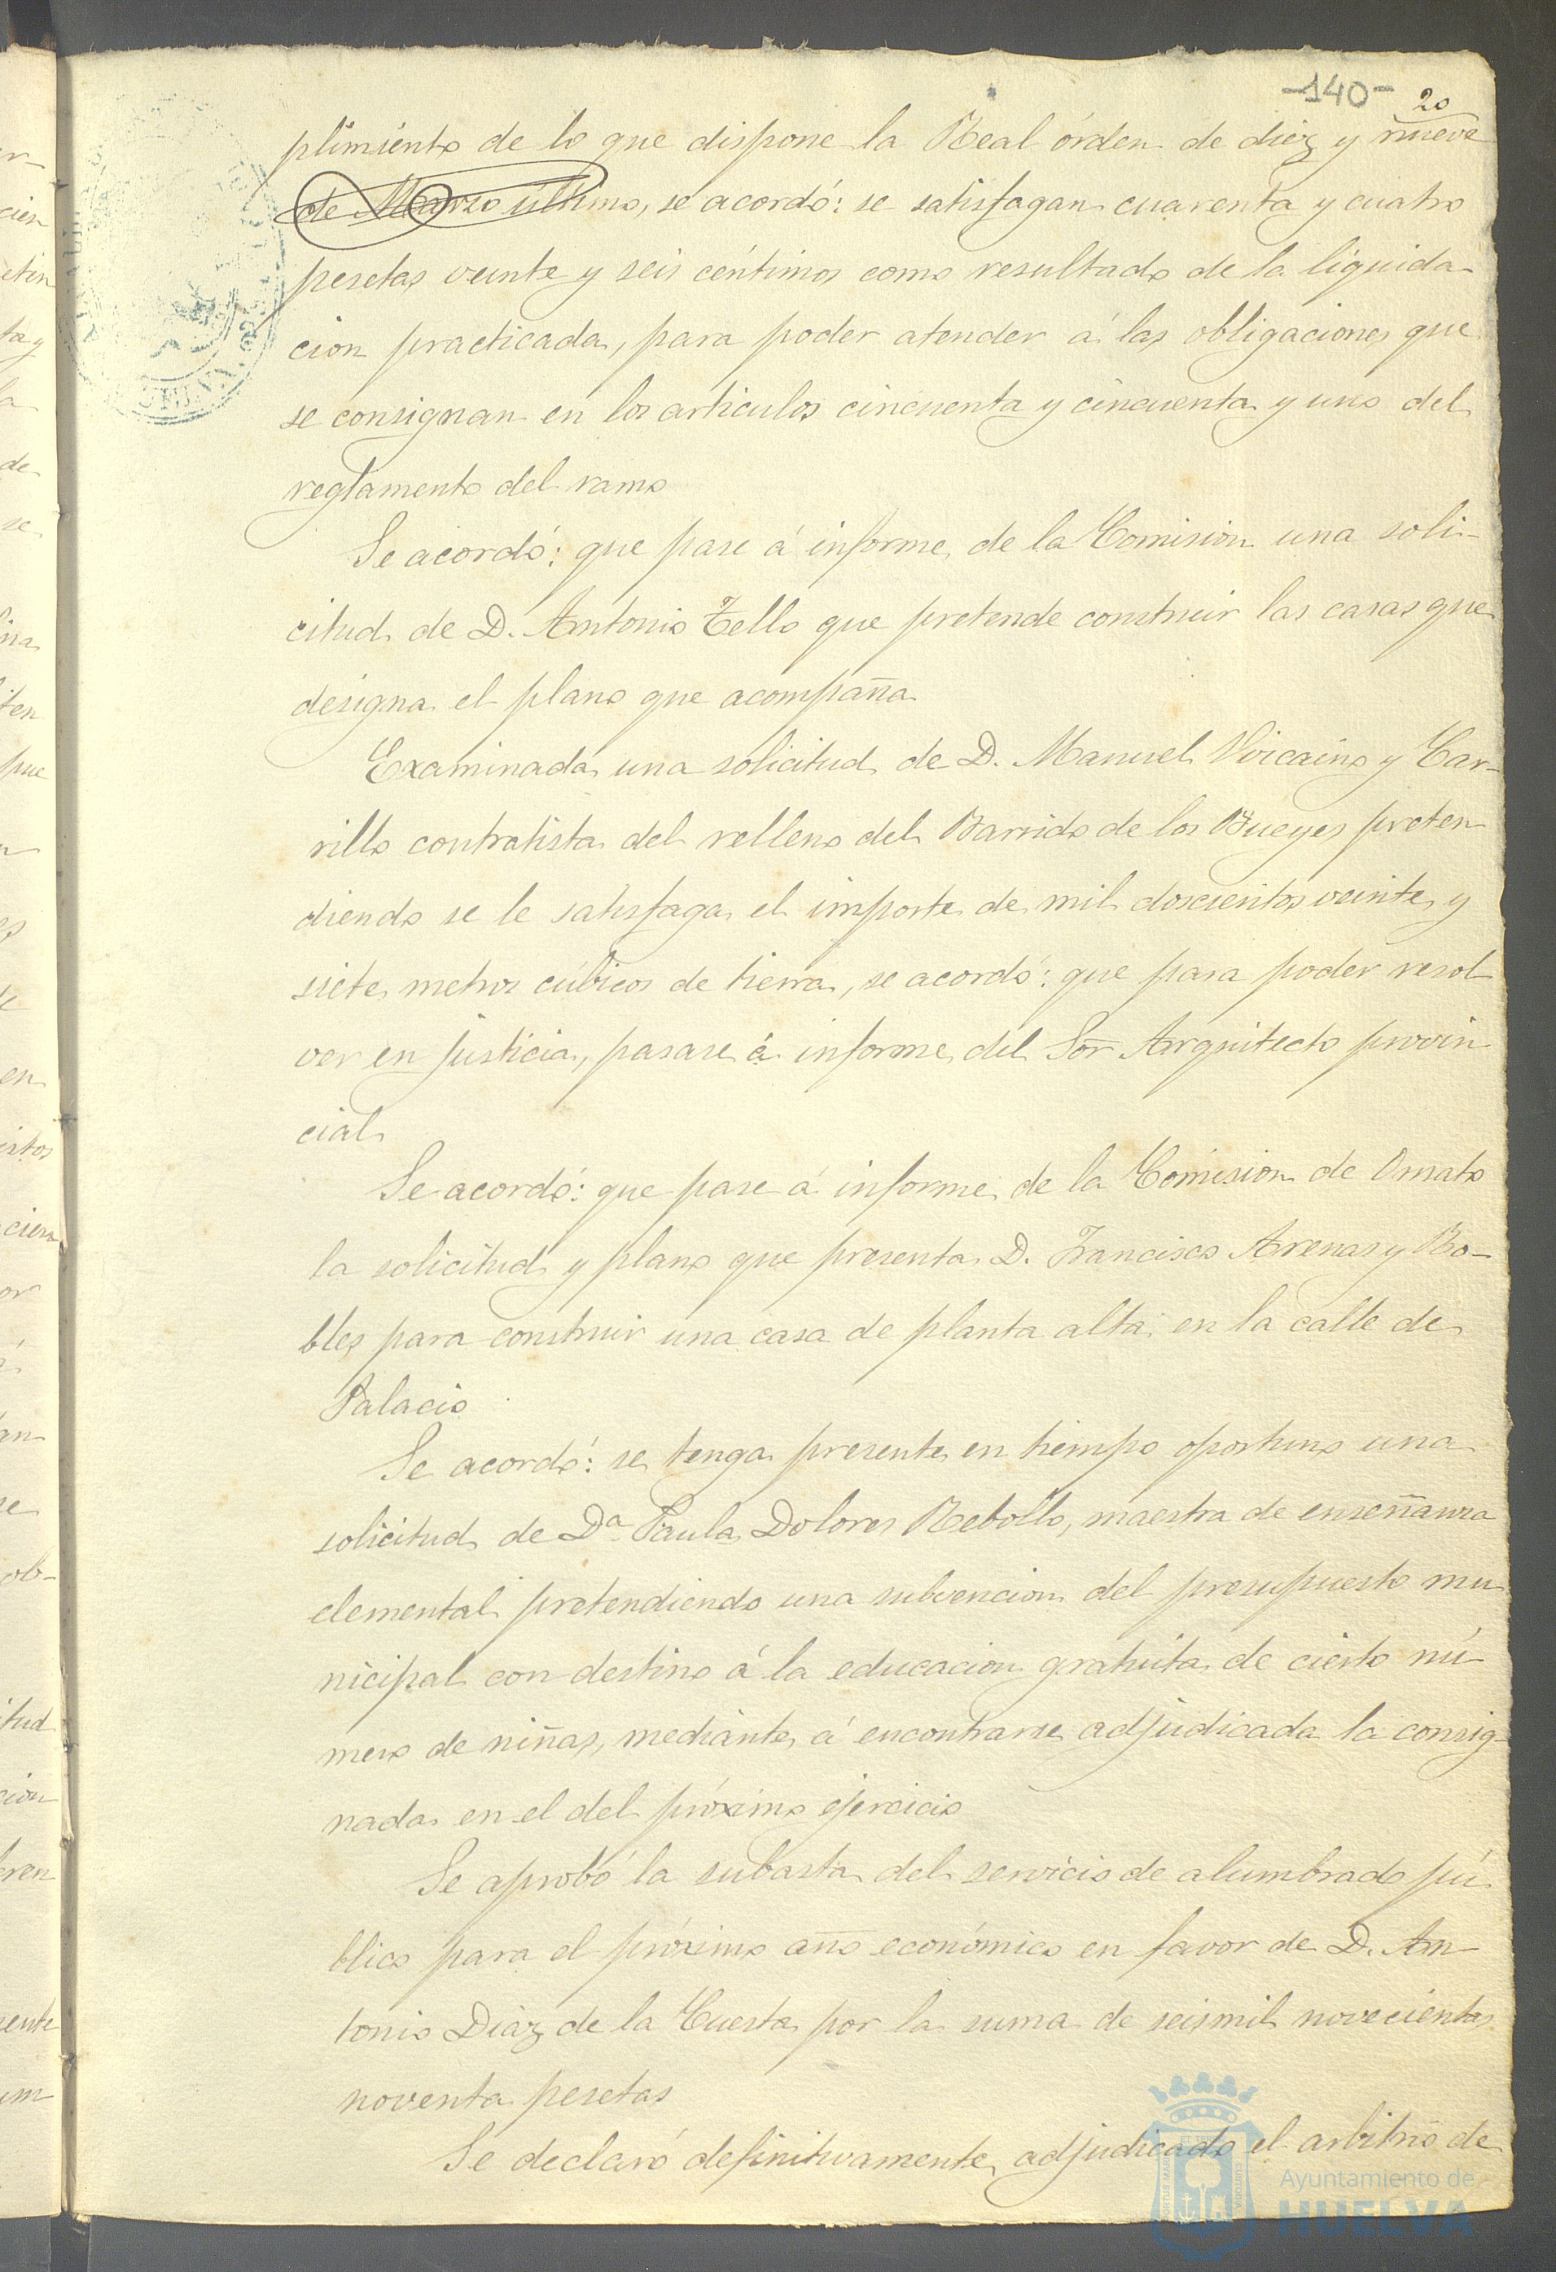 -140-
20
plimiento de lo que dispone la Real órden de diez y nueve
de Marzo último, se acordó: se satisfagan cuarenta y cuatro
pesetas veinte y seis céntimos como resultado de la liquida-
cion practicada, para poder atender á las obligaciones que
se consignan en los articulos cincuenta y cincuenta y uno del
reglamento del ramo
Se acordó: que pase á informe de la Comision una soli-
citud de D. Antonio Tello que pretende construir las casas que
designa el plano que acompaña
Examinada una solicitud de D. Manuel Vizcaino y Car-
rillo contratista del relleno del Barrido de los Bueyes preten
diendo se le satisfaga el importe de mil doscientos veinte y
siete metros cúbicos de tierra, se acordó: que para poder resol
ver en justicia, pasase á informe del Sor Arquitecto provin
cial
Se acordó: que pase á informe de la Comision de Ornato
la solicitud y plano que presenta D. Francisco Arenas y Ro-
bles para construir una casa de planta alta en la calle de
Palacio
Se acordó: se tenga presente en tiempo oportuno una
solicitud de Da Paula Dolores Rebollo, maestra de enseñanza
elemental pretendiendo una subvencion del presupuesto mu
nicipal con destino á la educacion gratuita de cierto nú
mero de niñas, mediante á encontrarse adjudicada la consig-
nada en el del próximo ejercicio
Se aprobó la subasta del servicio de alumbrado pú
blico para el próximo año económico en favor de D. An-
tonio Diaz de la Cuesta por la suma de seismil novecientas
noventa pesetas
Se declaró definitivamente adjudicado el arbitrio de
Ayuntamiento de
HUELVA